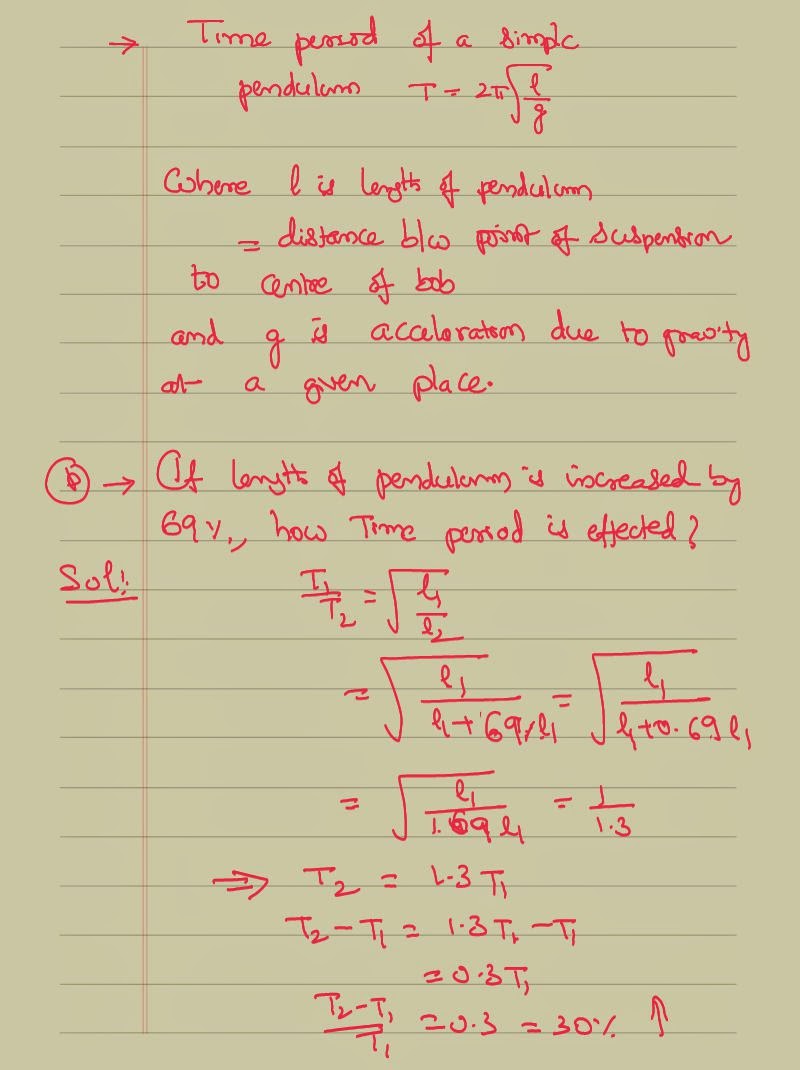 → Time period of a simple
pendulum T = 2π√(l/g)
Where l is length of pendulum
= distance b/w point of suspension
to centre of bob
and g is acceleration due to gravity
at a given place.
P → If length of pendulum is increased by
69%, how Time period is effected?
Sol:
T₁/T₂ = √(l₁/l₂)
= √(l₁/(l₁+69%l₁)) = √(l₁/(l₁+0.69l₁))
= √(l₁/(1.69l₁)) = 1/1.3
⇒ T₂ = 1.3T₁
T₂-T₁ = 1.3T₁-T₁
= 0.3T₁
(T₂-T₁)/T₁ = 0.3 = 30% ↑